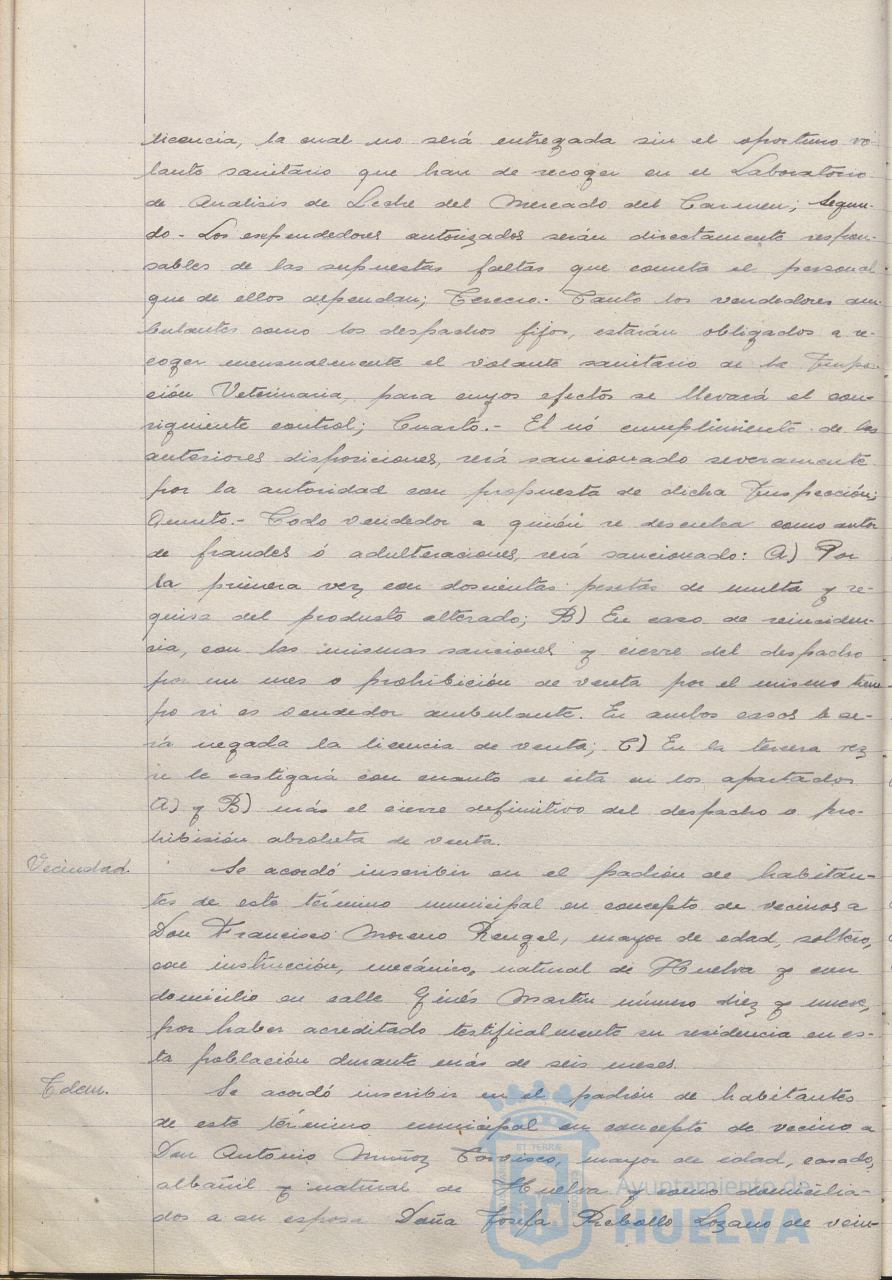 licencia, la cual no será entregada sin el oportuno vo-
lante sanitario que han de recoger en el Laboratorio
de Analisis de Leche del Mercado del Carmen; Segun-
do.- Los expendedores autorizados serán directamente respon-
sables de las supuestas faltas que cometa el personal
que de ellos dependan; Tercero.- Tanto los vendedores am-
bulantes como los despachos fijos, estarán obligados a re-
coger mensualmente el volante sanitario de la Inspec-
ción Veterinaria, para cuyos efectos se llevará el con-
siguiente control; Cuarto.- El nó cumplimiento de las
anteriores disposiciones, será sancionado severamente
por la autoridad con propuesta de dicha Inspección;
Quinto.- Todo vendedor a quién se descubra como autor
de fraudes ó adulteraciones, será sancionado: A) Por
la primera vez con doscientas pesetas de multa y re-
quisa del producto alterado; B) En caso de reinciden-
cia, con las mismas sanciones y cierre del despacho
por un mes o prohibición de venta por el mismo tiem-
po si es vendedor ambulante. En ambos casos le se-
rá negada la licencia de venta; C) En la tercera vez
se le castigará con cuanto se cita en los apartados
A) y B) más el cierre definitivo del despacho o pro-
hibisión absoluta de venta.
Vecindad.
Se acordó inscribir en el padrón de habitan-
tes de este término municipal en concepto de vecinos a
Don Francisco Moreno Rengel, mayor de edad, soltero,
con instrucción, mecánico, natural de Huelva y con
domicilio en calle Ginés Martin número diez y nueve,
por haber acreditado testificalmente su residencia en es-
ta población durante más de seis meses.
Idem.
Se acordó inscribir en el padrón de habitantes
de este término municipal en concepto de vecino a
Don Antonio Muñoz Corvisco, mayor de edad, casado,
albañil y natural de Huelva y como domicilia-
dos a su esposa Doña Josefa Rebollo Lozano de vein-
Ayuntamiento de
HUELVA